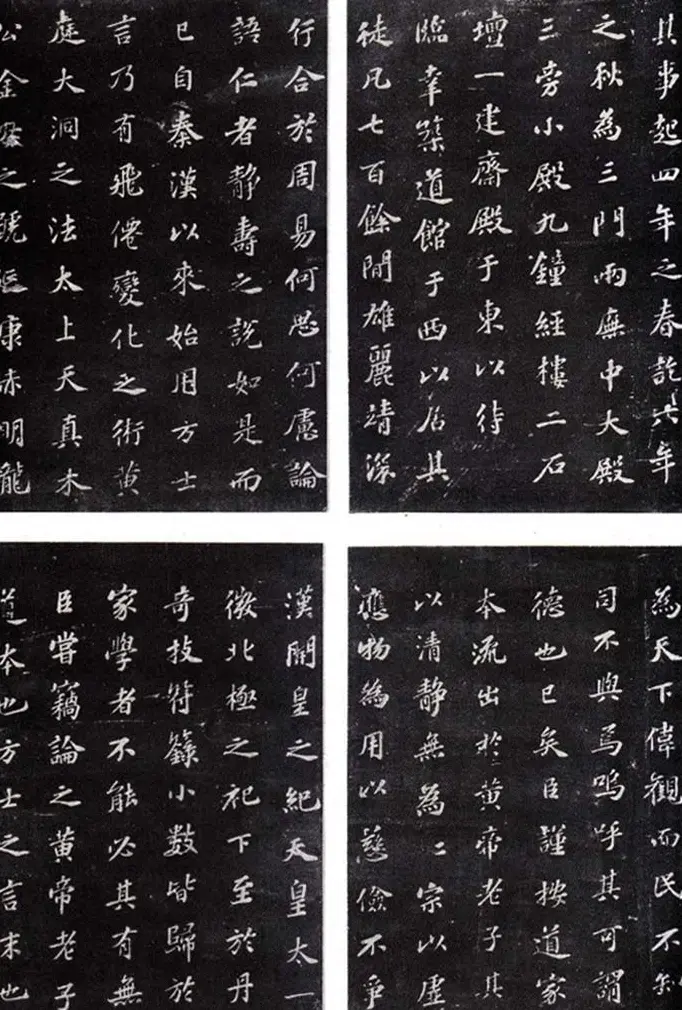 其事起四年之春訖六年
之秋為三門兩廡中大殿
三旁小殿九鐘經樓二石
壇一建齋殿于東以待
臨幸築道館于西以居其
徒凡七百餘間雄麗靖深
為天下偉觀而民不知
司不與焉嗚呼其可謂
德也已矣臣謹按道家
本流出於黃帝老子其
以清靜無為二宗以虛
應物為用以慈儉不爭
行合於周易何思何慮論
語仁者靜壽之說如是而
已自秦漢以來始用方士
言乃有飛僊變化之術黃
庭大洞之法太上天真木
公金母之號延康赤明龍
漢開皇之紀天皇太一
微北極之祀下至於丹
奇技符籙小數皆歸於
家學者不能必其有無
臣嘗竊論之黃帝老子
道本也方士之言末也